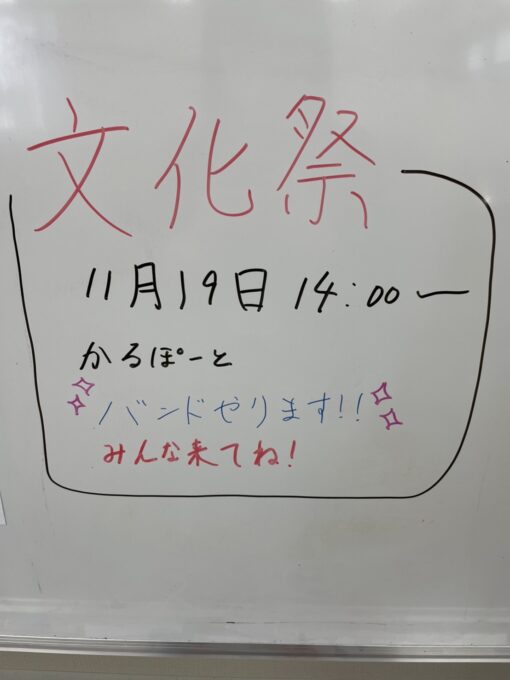 文化祭
11月19日 14:00ー
かるぽーと
バンドやります!!
みんな来てね!